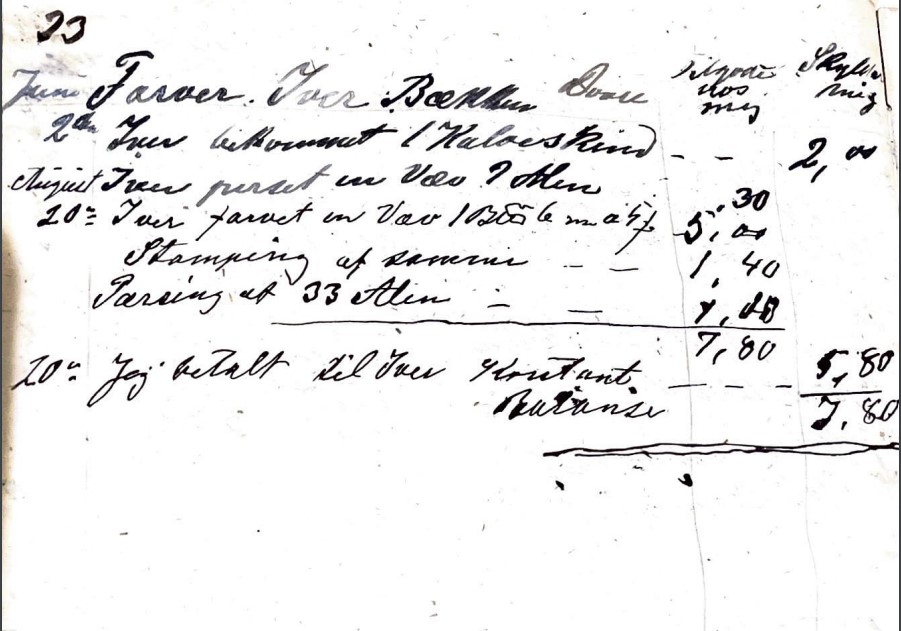 23
Juni Farver Iver Bækken Tilgode hos mig Skylder mig
2den Iver bekommet 1 Kalveskind - - 2,00
August Iver perset en Væv 7 Alen ,30
20n Iver farvet en Væv 1 6 m a 5,00
Stamping af samme - - 1,40
Pærsing af 33 Alen - -
7,80
20n Jeg betalt til Iver Kontant - - - 5,80
Balanse 7,80